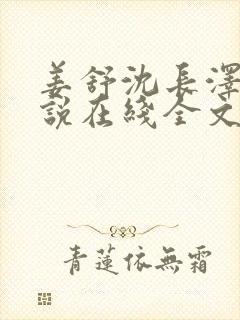 姜舒沈長澤
說在綫全文
青蓮依無霜